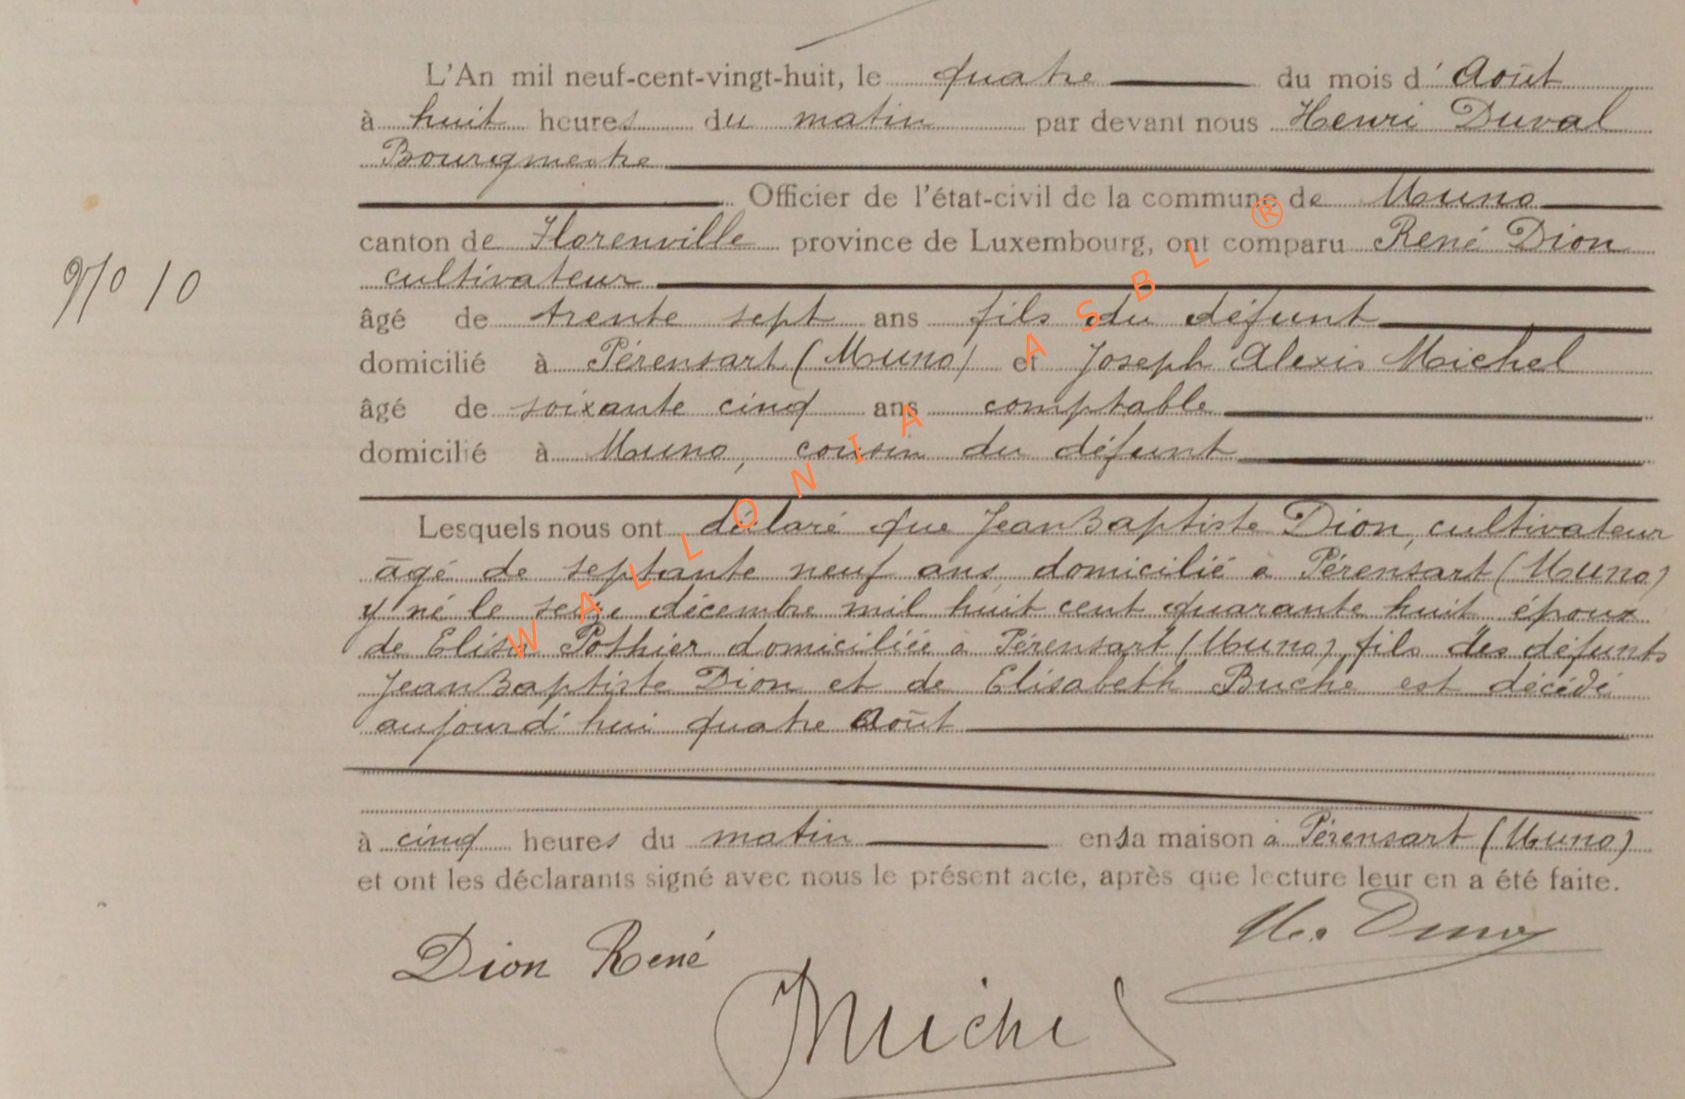 L'An mil neuf-cent-vingt-huit, le quatre du mois d'Août
à huit heures du matin par devant nous Henri Duval
Bourgmestre
Officier de l'état-civil de la commune de Muno
canton de Florenville province de Luxembourg, ont comparu René Dion
N° 10
cultivateur
âgé de trente sept ans fils du défunt
domicilié à Pérensart (Muno) et Joseph Alexis Michel
âgé de soixante cinq ans comptable
domicilié à Muno, cousin du défunt
Lesquels nous ont déclaré que Jean Baptiste Dion, cultivateur
âgé de septante neuf ans domicilié à Pérensart (Muno)
y né le seize décembre mil huit cent quarante huit époux
de Elisa Pothier domiciliée à Pérensart (Muno), fils des défunts
Jean Baptiste Dion et de Elisabeth Buche est décédé
aujourd'hui quatre Août
à cinq heures du matin en sa maison à Pérensart (Muno)
et ont les déclarants signé avec nous le présent acte, après que lecture leur en a été faite.
H. Duval
Dion René
JMichel
WALLONIA ASBL ®